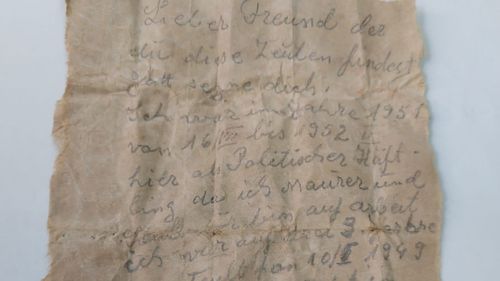 Lieber Freund der
du diese Zeilen findest
Gott segne dich.
Ich war im Jahre 1951
von 16/VII bis 1952 II
hier als Politischer Häft-
ling da ich Maurer und
auf arbeit
ich war auf der 3
von 10/I 1949